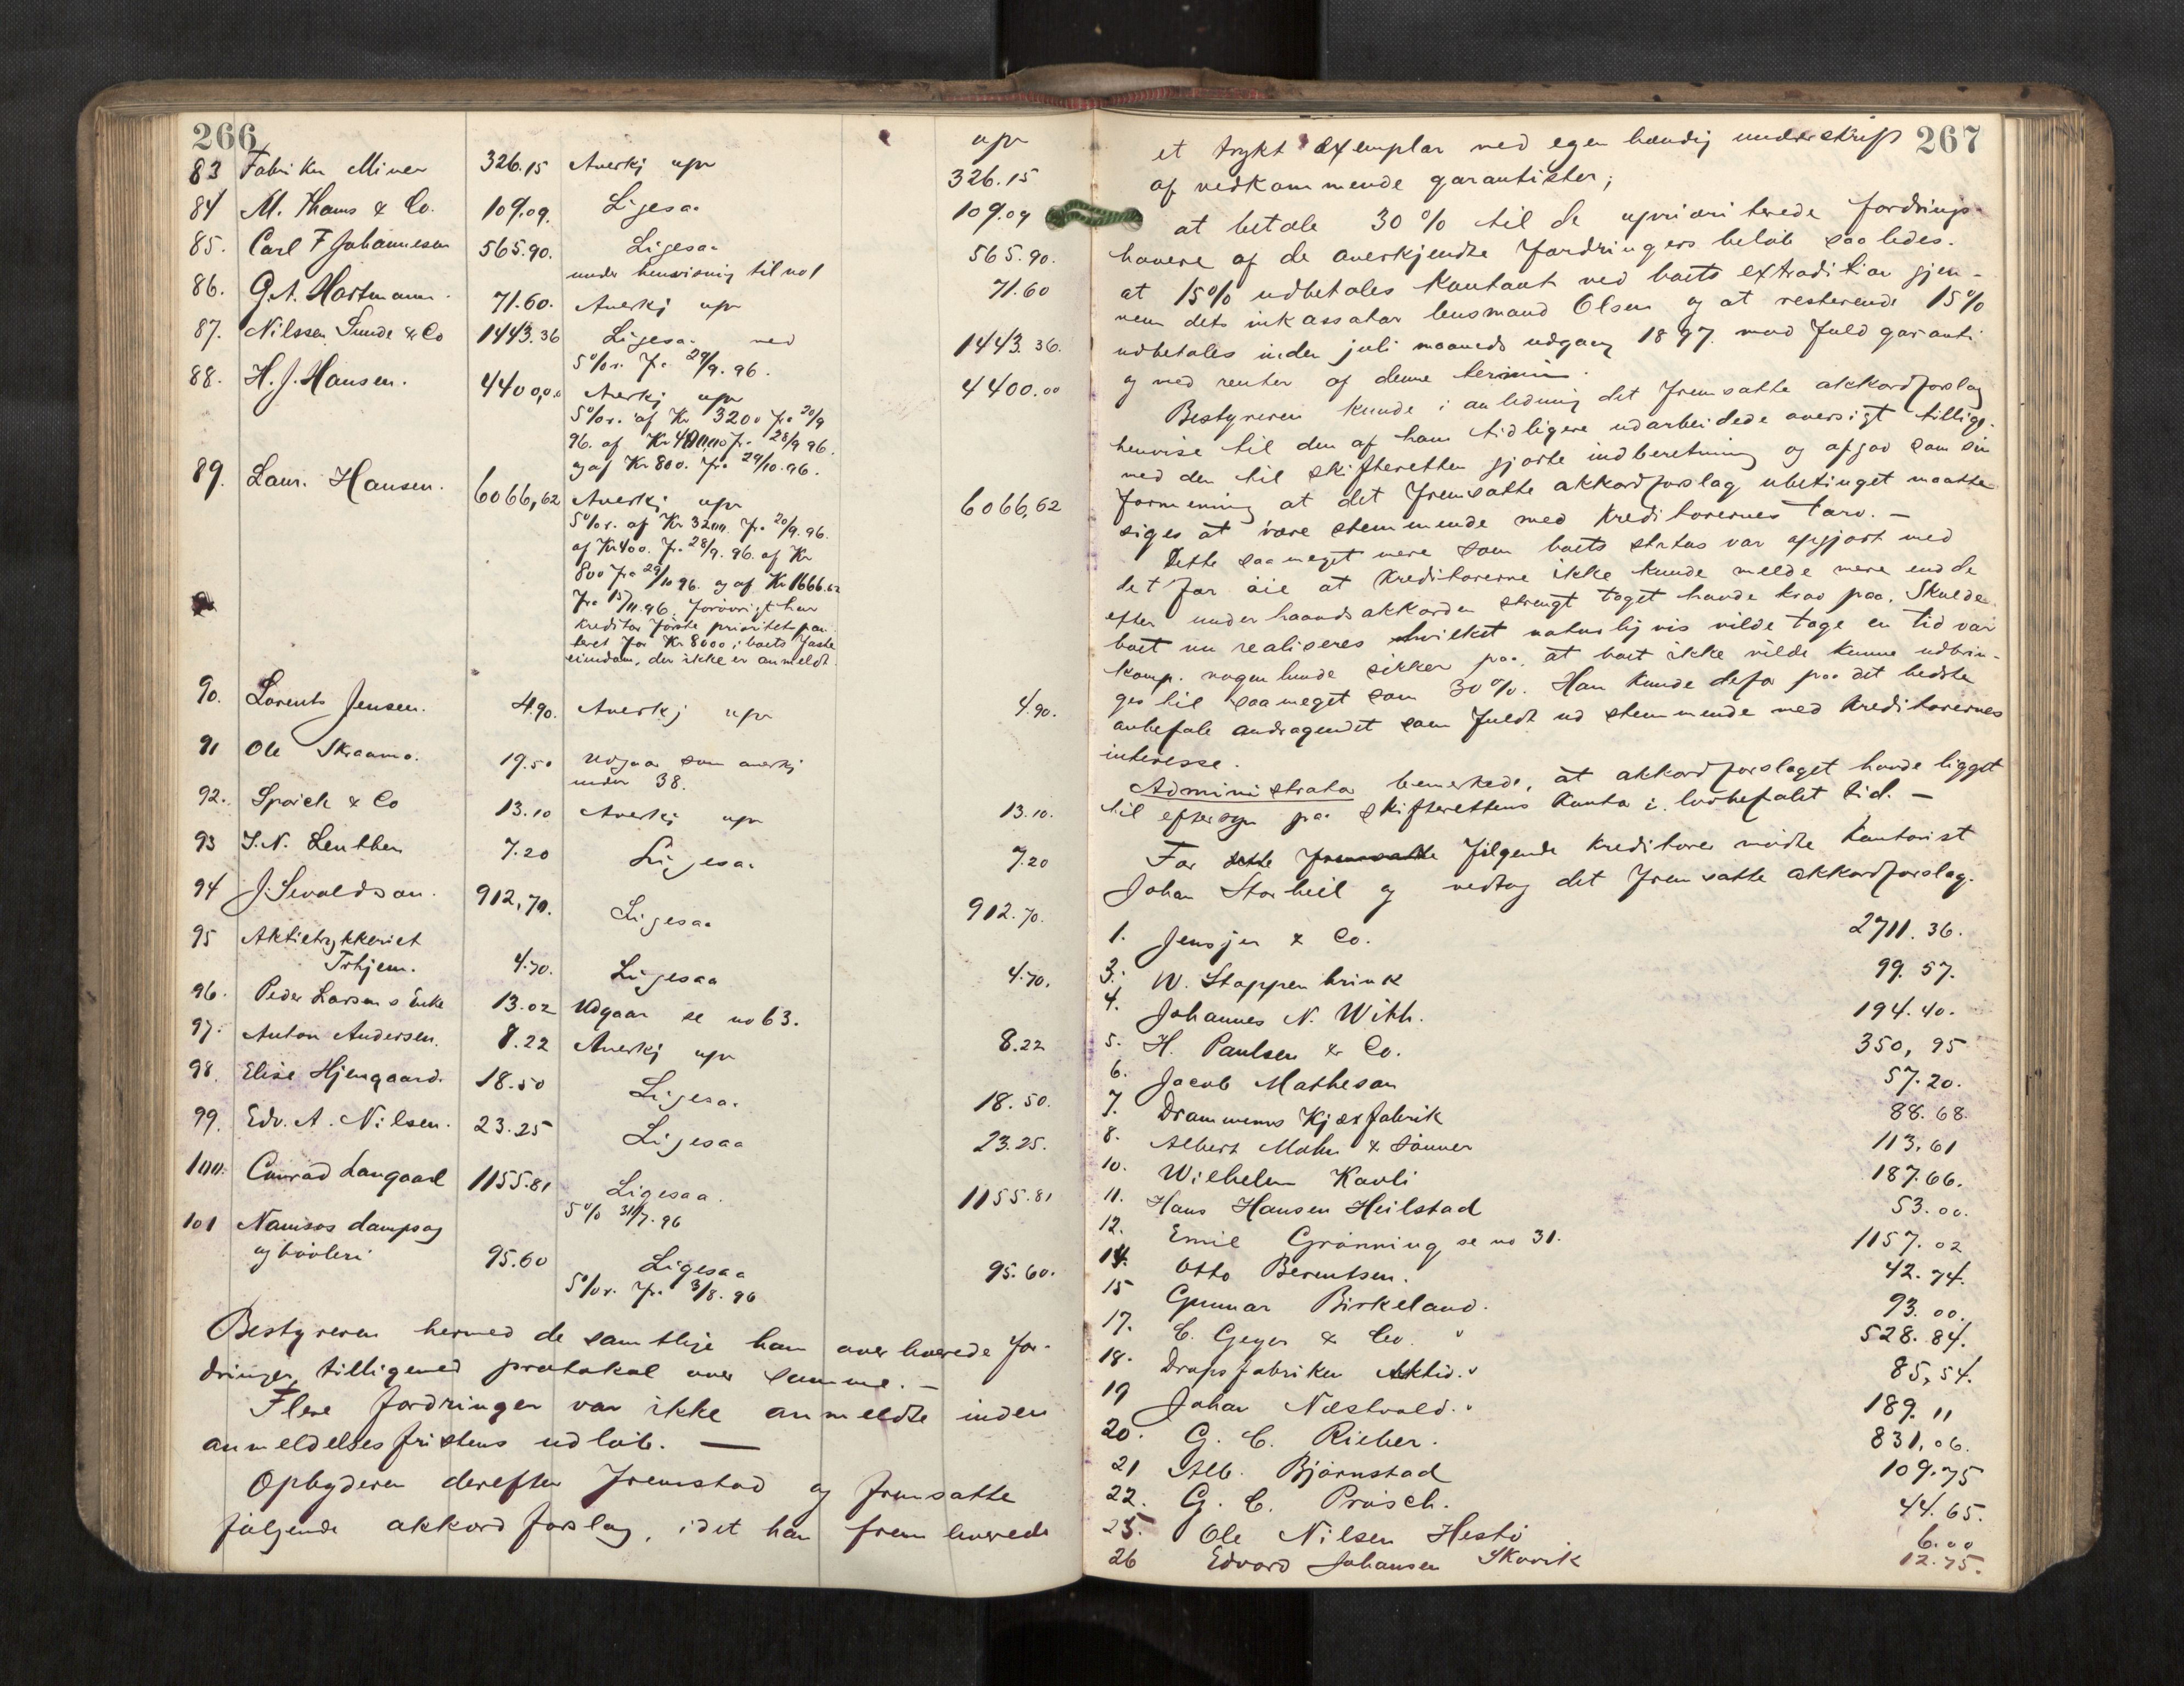 266
upr
83 Fabriken Miner 326.15 Anerkj upr 326.15
84 M. Thams & Co. 109.09. Ligesaa 109.09
85. Carl F Johannesen 565.90. Ligesaa 565.90.
under henvisning til no 1
86. G.A. Hartmann. 71.60. Anerkj upr 71.60
87. Nilssen Sunde & Co 1443.36 Ligesaa med 1443.36.
5% r. fra 29/9. 96.
88. H. J. Hansen. 4400,00 Anerkj upr 4400.00
5% r. af Kr 3200 fra 20/9
96. af Kr 400,00 fra 28/9 96.
og af Kr 800. fra 29/10. 96.
89. Laur. Hansen. 6066,62 Anerkj upr 6066,62
5% r. af Kr 3200. fra 20/9. 96.
af Kr 400. fra 28/9. 96. af Kr
800 fra 29/10 96. og af Kr 1666.62
fra 15/11. 96. Forøvrigt har
kreditor første prioritets pan-
teret for Kr 8000 i boets faste
eiendom, der ikke er anmeldt.
90. Lorents Jensen. 4.90. Anerkj upr 4.90.
91 Ole Skraamo. 19.50 Udgaar som anerkj
under 38.
92. Spoich & Co 13.10 Anerkj upr 13.10.
93 I. N. Leuthen 7.20 Ligesaa 7.20
94 J. Sevaldson. 912,70. Ligesaa 912.70.
95 Aktietrykkeriet
Trhjem. 4.70. Ligesaa 4.70.
96. Peder Larsens Enke 13.02 Udgaar se no 63.
97. Anton Andersen. 8.22 Anerkj upr 8.22
98. Elise Hjemgaard. 18.50 Ligesaa 18.50.
99. Edv. A. Nilsen. 23.25 Ligesaa 23.25.
100. Conrad Langaard 1155.81 Ligesaa. 1155.81
5% 31/7. 96
101 Namsos dampsag
og høvleri 95.60 Ligesaa 95.60.
5% r. fra 3/8. 96
Bestyreren hermed de samtlige ham overleverede for-
dringer, tilligemed protokol over samme. —
Flere fordringer var ikke anmeldte inden
anmeldelsesfristens udløb. —
Opbyderen derefter fremstod og fremsatte
følgende akkordforslag, idet han fremleverede
267
et trykt exemplar med egenhændig underskrift
af vedkommende garantister;
at betale 30 % til de upriori terede fordrings-
havere af de anerkjendte fordringers beløb saaledes.
at 15% udbetales kontant ved boets extradition gjen-
nem dets inkassator lensmand Olsen og at resterende 15%
udbetales inden juli maaneds udgang 1897. mod fuld garanti
og med renter af denne termin.
Bestyreren kunde i anledning det fremsatte akkordforslag
henvise til den af ham tidligere udarbeidede oversigt tillige-
med den til skifteretten gjorte indberetning og afgav som sin
formening at det fremsatte akkordforslag ubetinget maatte
siges at være stemmende med kreditorernes tarv. —
Dette saameget mere som boets status var opgjort med
det for øie at kreditorerne ikke kunde melde mere end de
efter underhaandsakkorden strengt taget havde krav paa. Skulde
boet nu realiseres hvilket naturligvis vilde tage en tid var
komp. nogenlunde sikker paa, at boet ikke vilde kunne udbrin-
ges til saameget som 30%. Han kunde defor paa det bedste
anbefale andragendet som fuldt ud stemmende med kreditorernes
interesse.
Administrator bemerkede, at akkordforslaget havde ligget
til eftersyn paa skifterettens kontor i lovbefalet tid. —
For dette fremsatte følgende kreditorer mødte kontorist
Johan Storheil og vedtog det fremsatte akkordforslag.
1. Jensjer & Co. 2711.36.
3. W. Stoppenbrink 99.57.
4. Johannes N. With. 194.40.
5. H. Paulsen & Co. 350,95
6. Jacob Matheson 57.20.
7. Drammens Kjexfabrik 88.68
8. Albert Mohn & Sønner 113,61
10. Wilhelm Kavli 187.66.
11. Hans Hansen Heilstad 53.00.
12. Emil Grønning se no 31. 1157.02
14. Otto Berentsen. 42.74.
15 Gunnar Birkeland. 93.00.
17. C. Geyer & Co. 528.84.
18. Drops fabriken Aktid. 85,54.
19 Johan Næstvold. 189.11
20. G. C. Rieber. 831,06.
21 Alb. Bjørnstad 109.75
22. G. C. Prösch. 44.65.
25. Ole Nilsen Hestø 6.00
26 Edvard Johansen Skavik 12.75.